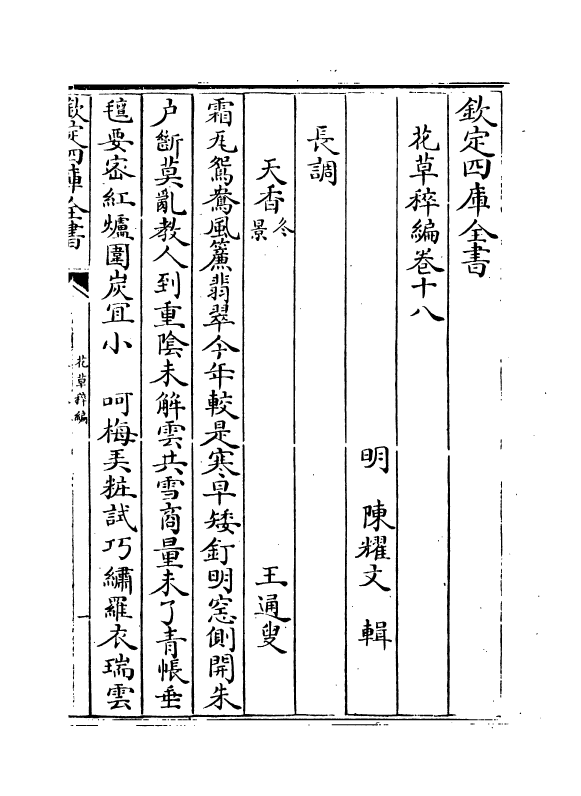 欽定四庫全書
花草稡編卷十八
明 陳耀文 輯
長調
天香冬景 王通叟
霜瓦鴛鴦風簾翡翠今年較是寒早矮釘明窓側開朱
户斷莫亂教人到重陰未解雲共雪商量未了青帳垂
氊要宻紅爐圍炭宜小 呵梅弄粧試巧繡羅衣瑞雲
欽定四庫全書
花草稡編
一